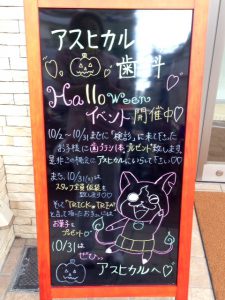 アスヒカル
歯科
Halloween
イベント開催中
10/2~10/31までに「検診」に来て下さった
お子様に歯ブラシ1本プレゼント致します
是非この機会にアスヒカルにいらして下さい
また、10/31は
スタッフ全員仮装を
致します
そして"TRICK or TREAT"
と言って頂いたお子様には
お菓子を
プレゼント
10/31は
ぜひ
アスヒカルへ